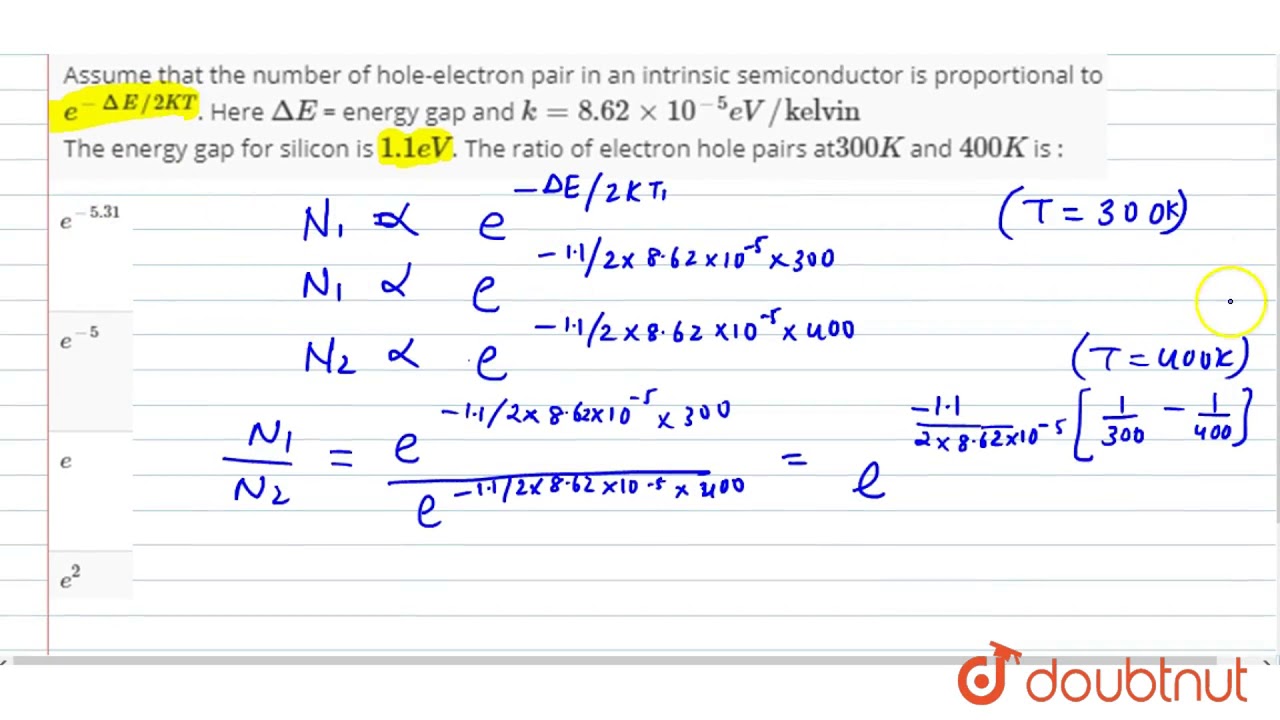 Assume that the number of hole-electron pair in an intrinsic semiconductor is proportional to
e^{-ΔE/2KT}. Here ΔE = energy gap and k = 8.62 × 10^{-5} eV / kelvin
The energy gap for silicon is 1.1eV. The ratio of electron hole pairs at300K and 400K is :
e^{-5.31}
e^{-5}
e
e^{2}
N₁ ∝ e^{-ΔE/2KT₁} (T = 300K)
N₁ ∝ e^{-1.1/2×8.62×10^{-5}×300}
N₂ ∝ e^{-1.1/2×8.62×10^{-5}×400} (T=400K)
N₁/N₂ = e^{-1.1/2×8.62×10^{-5}×300} / e^{-1.1/2×8.62×10^{-5}×400} = e^{-1.1/2×8.62×10^{-5} [1/300 - 1/400]}
doubtnut